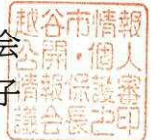 会
子
越谷市情報
公開・個人
情報保護審
議会長之印